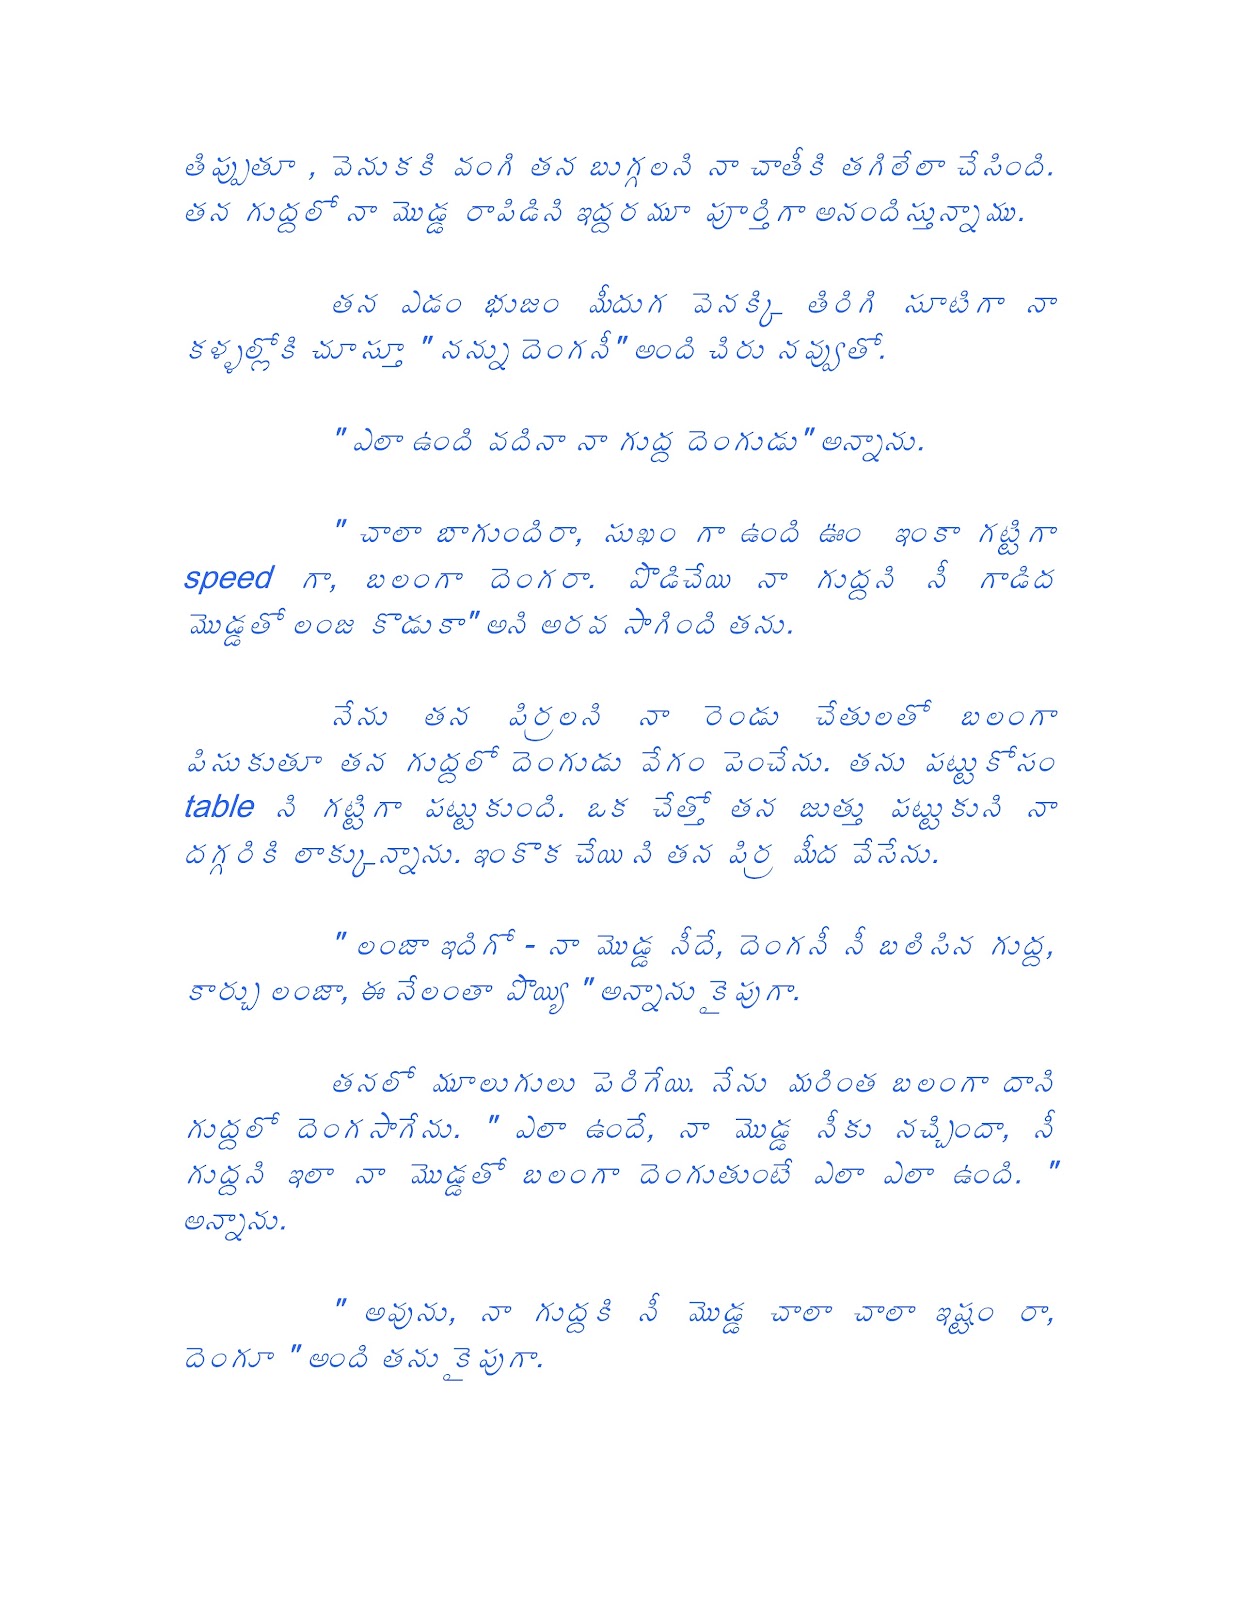 తిప్పుతూ , వెనుకకి వంగి తన బుగ్గలని నా చాతీకి తగిలేలా చేసింది.
తన గుద్దలో నా మొడ్డ రాపిడిని ఇద్దరమూ పూర్తిగా అనందిస్తున్నాము.
తన ఎడం భుజం మీదుగ వెనక్కి తిరిగి సూటిగా నా
కళ్ళల్లోకి చూస్తూ " నన్ను దెంగనీ" అంది చిరు నవ్వుతో.
" ఎలా ఉంది వదినా నా గుద్ద దెంగుడు" అన్నాను.
" చాలా బాగుందిరా, సుఖం గా ఉంది ఊం ఇంకా గట్టిగా
speed గా, బలంగా దెంగరా. పొడిచేయి నా గుద్దని నీ గాడిద
మొడ్డతో లంజ కొడుకా" అని అరవ సాగింది తను.
నేను తన పిర్రలని నా రెండు చేతులతో బలంగా
పిసుకుతూ తన గుద్దలో దెంగుడు వేగం పెంచేను. తను పట్టుకోసం
table ని గట్టిగా పట్టుకుంది. ఒక చేత్తో తన జుత్తు పట్టుకుని నా
దగ్గరికి లాక్కున్నాను. ఇంకొక చేయి ని తన పిర్ర మీద వేసేను.
" లంజా ఇదిగో - నా మొడ్డ నీదే, దెంగనీ నీ బలిసిన గుద్ద,
కార్చు లంజా, ఈ నేలంతా పొయ్యి " అన్నాను కైపుగా.
తనలో మూలుగులు పెరిగేయి. నేను మరింత బలంగా దాని
గుద్దలో దెంగసాగేను. " ఎలా ఉందే, నా మొడ్డ నీకు నచ్చిందా, నీ
గుద్దని ఇలా నా మొడ్డతో బలంగా దెంగుతుంటే ఎలా ఎలా ఉంది. "
అన్నాను.
" అవును, నా గుద్దకి నీ మొడ్డ చాలా చాలా ఇష్టం రా,
దెంగూ " అంది తను కైపుగా.